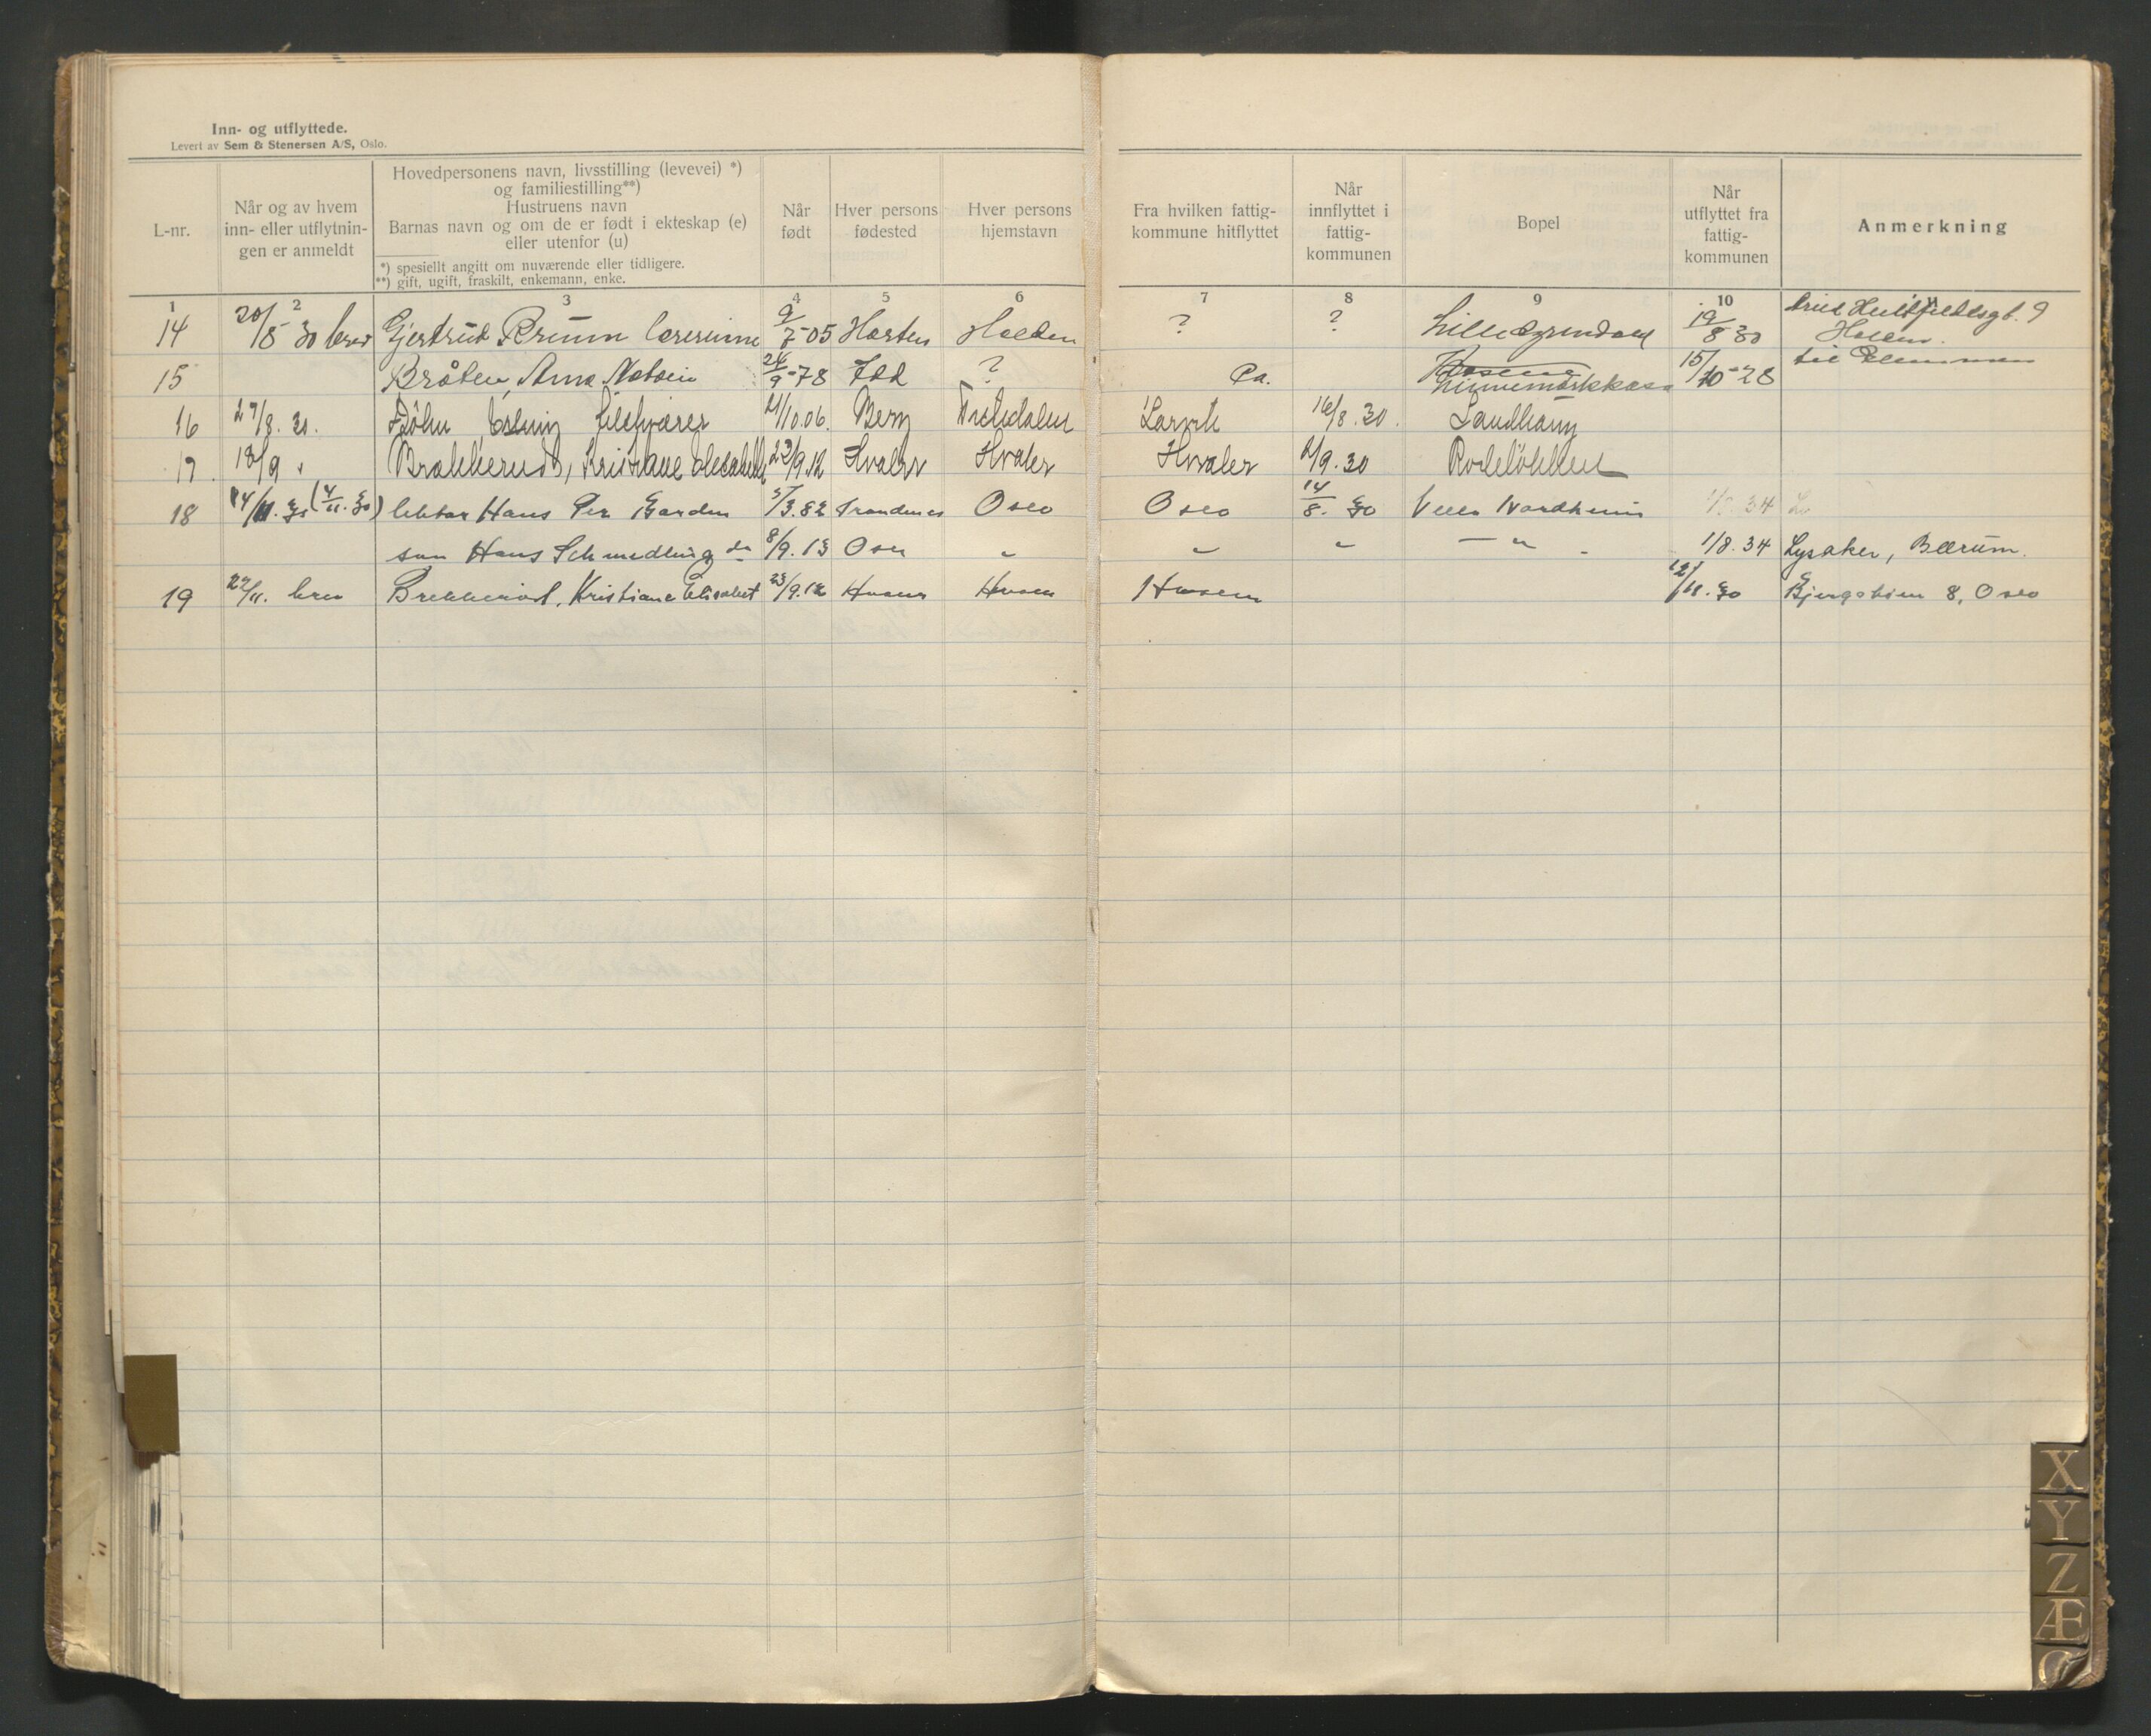 Inn- og utflyttede.
Levert av Sem & Stenersen A/S, Oslo.
L-nr.
Når og av hvem
inn- eller utflytnin-
gen er anmeldt
Hovedpersonens navn, livsstilling (levevei) *)
og familiestilling**)
Hustruens navn
Barnas navn og om de er født i ekteskap (e)
eller utenfor (u)
*) spesiellt angitt om nuværende eller tidligere.
**) gift, ugift, fraskilt, enkemann, enke.
Når
født
Hver persons
fødested
Hver persons
hjemstavn
Fra hvilken fattig-
kommune hitflyttet
Når
innflyttet i
fattig-
kommunen
Bopel
Når
utflyttet fra
fattig-
kommunen
Anmerkning
1 2 3 4 5 6 7 8 9 10
14 20/8 30 brev Gjertrud Bruun lærerinne 9/7-05 Horten Halden ? ? 19/8 30 Halden.
15 Bråten, 24/9-78 Idd ? 15/10-28 til Glemmen
16 27/8. 30. 21/10.06. Berg Tistedalen Larvik 16/8.30. Sandhaug
17. 18/9 " Brækkerud, Kristiane 23/9.12 Hvaler Hvaler Hvaler 2/9.30 Rodeløkken
18 14/11. 30 (4/11. 30) lektor Hans Per Garden 5/3.82 Trondenes Oslo Oslo 14/8. 30 Nordheim 1/8.34
søn Hans Schmedling do 8/9.13 Oslo " " " — " — 1/8.34 Lysaker, Bærum.
19 22/11. brev Brekkerud, Kristiane Elisabet 23/9.12 Hvaler Hvaler Hvaler 12/11.30 8, Oslo
X
Y
Z
Æ
Ø